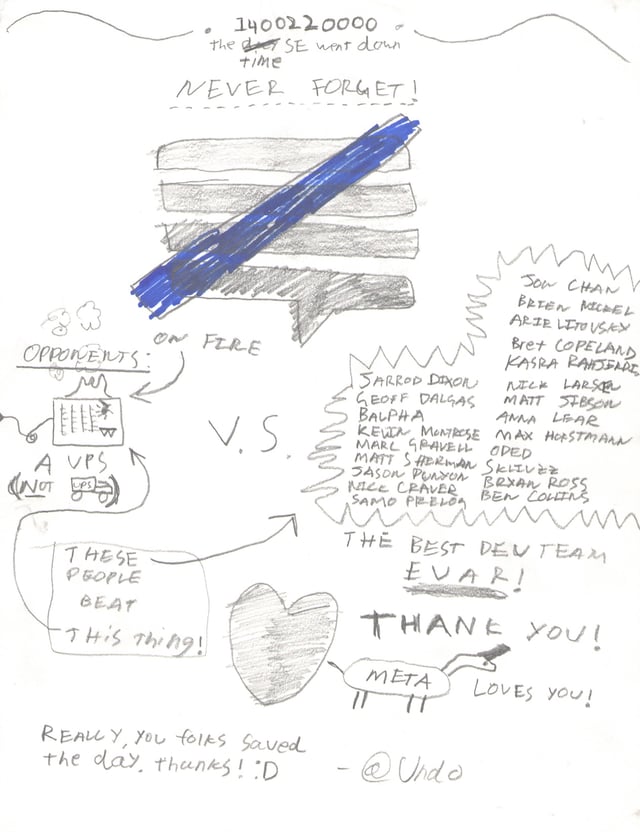 1400220000
the SE went down
time
NEVER FORGET!
ON FIRE
OPPONENTS:
A UPS
(NOT UPS)
V.S.
JON CHAN
BRIEN NICKEL
ARIE LITOVSKY
Bret COPELAND
KASRA
NICK LARSEN
MATT JIBSON
ANNA LEAR
MAX HORSTMANN
ODED
SKLIVZZ
BRYAN ROSS
BEN COLLINS
JARROD DIXON
GEOFF DALGAS
BALPHA
KEVIN MONTROSE
MARC GRAVELL
MATT SHERMAN
JASON PUNYON
NICK CRAVER
SAMO PRELOG
THE BEST DEV TEAM
EVAR!
THESE
PEOPLE
BEAT
THIS Thing!
THANK YOU!
META
LOVES YOU!
REALLY, YOU folks saved
the day. thanks! :D
- @Undo